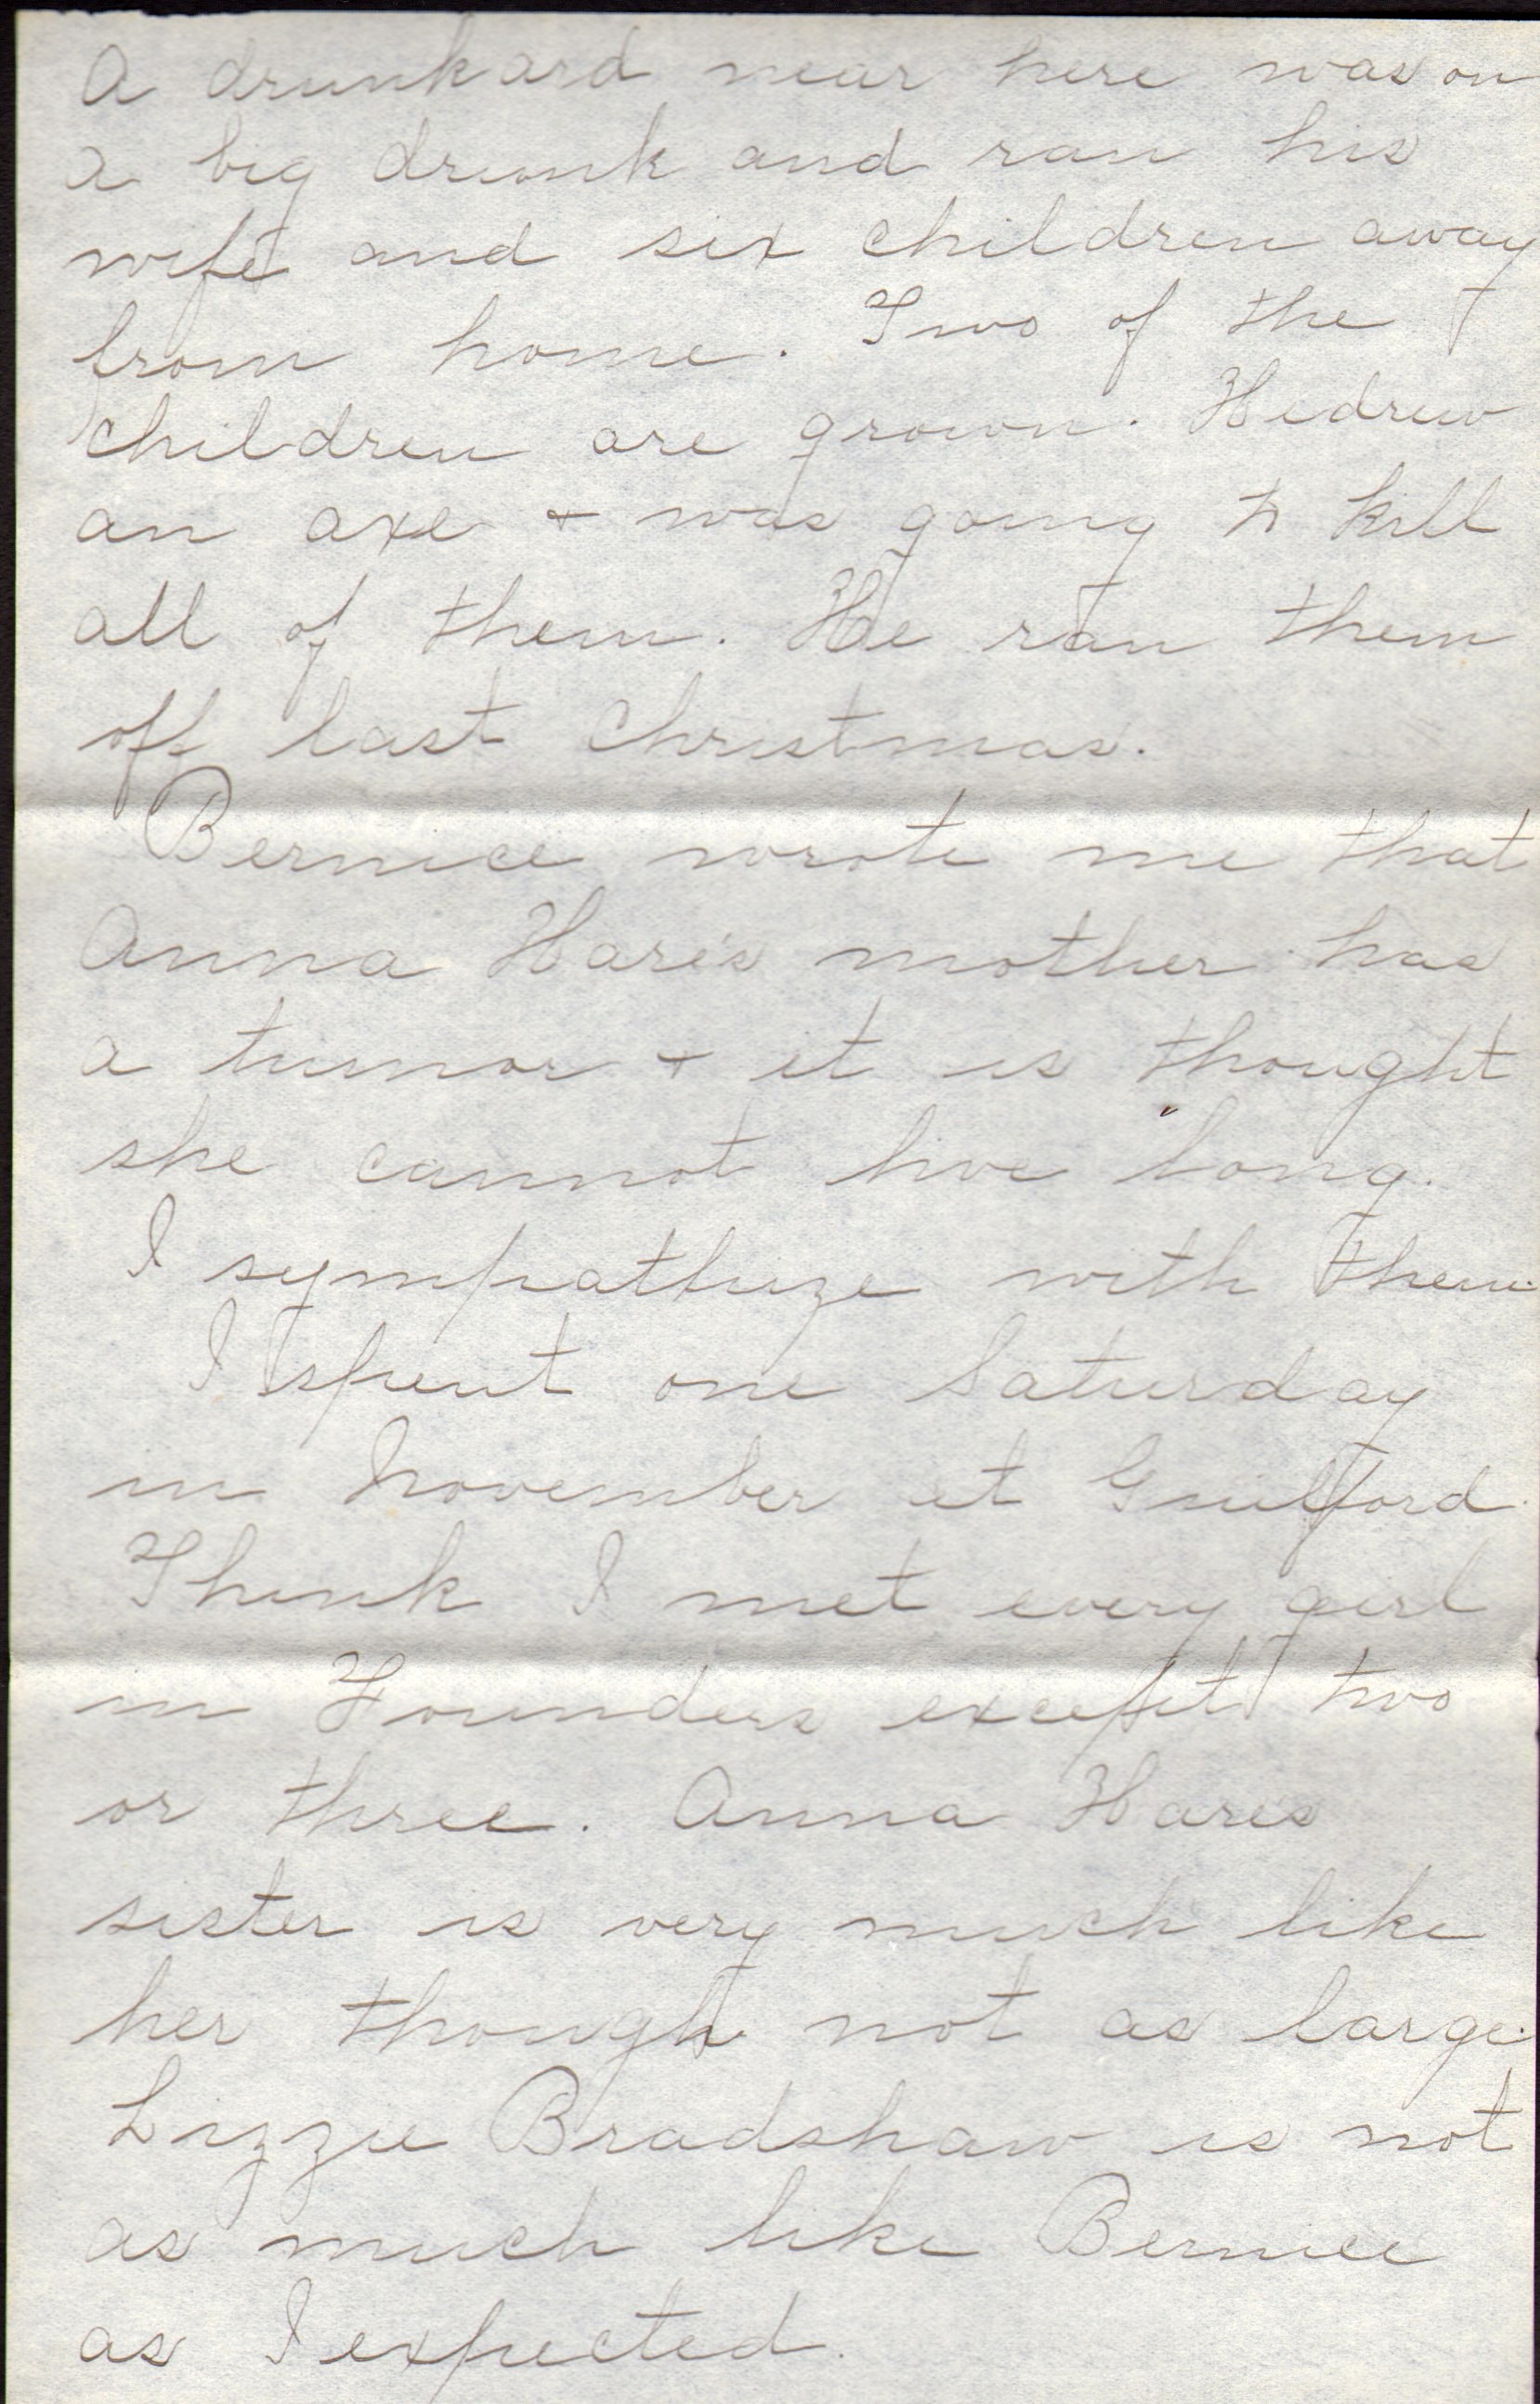 A drunkard near here was on
a big drunk and ran his
wife and six children away
from home. Two of the
children are grown. He drew
an axe + was going to kill
all of them. He ran them
off last Christmas.
Bernice wrote me that
Anna Hare's mother has
a tumor + it is thought
she cannot live long.
I sympathize with them.
I spent one Saturday
in November at Guilford.
Think I met every girl
in Founders except two
or three. Anna Hares
sister is very much like
her though not as large.
Lizzie Bradshaw is not
as much like Bernice
as I expected.